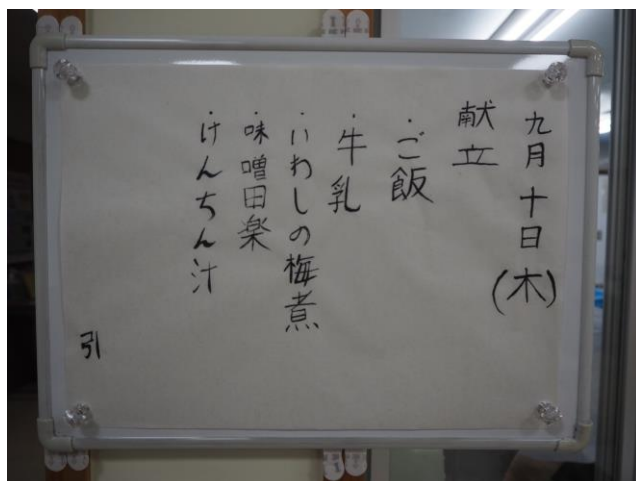 九月十日(木)
献立
・ご飯
・牛乳
・いわしの梅煮
・味噌田楽
・けんちん汁
引